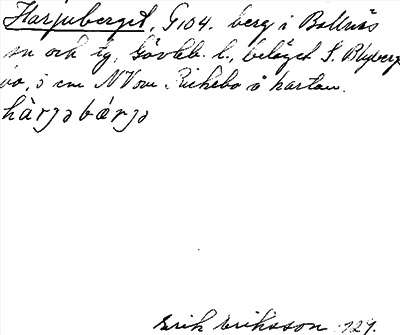 Harjuberget, G104. berg i Bollnäs
sn och tg, Gävleb. l., beläget S. Blyberg
5 cm NV om Rickebo å kartan.
hàrjəbǽrjə
Erik Eriksson 1929.